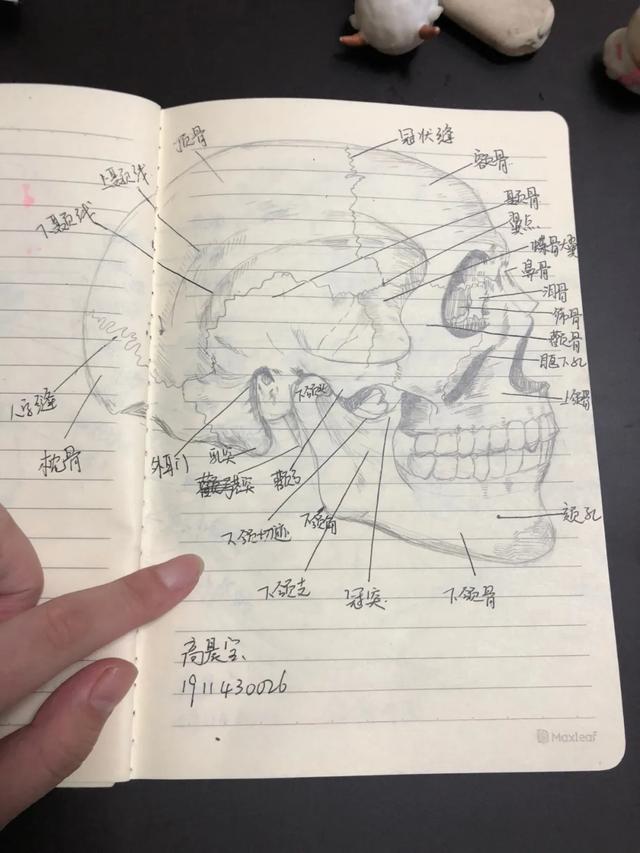 顶骨
冠状缝
额骨
上颞线
下颞线
颞骨
翼点
蝶骨大翼
鼻骨
泪骨
筛骨
颧骨
眶下孔
上颌骨
人字缝
枕骨
外耳门
乳突
茎突
颧弓
下颌切迹
下颌角
颏孔
下颌支
冠突
下颌骨
高晨宝
1911430026
Maxleaf